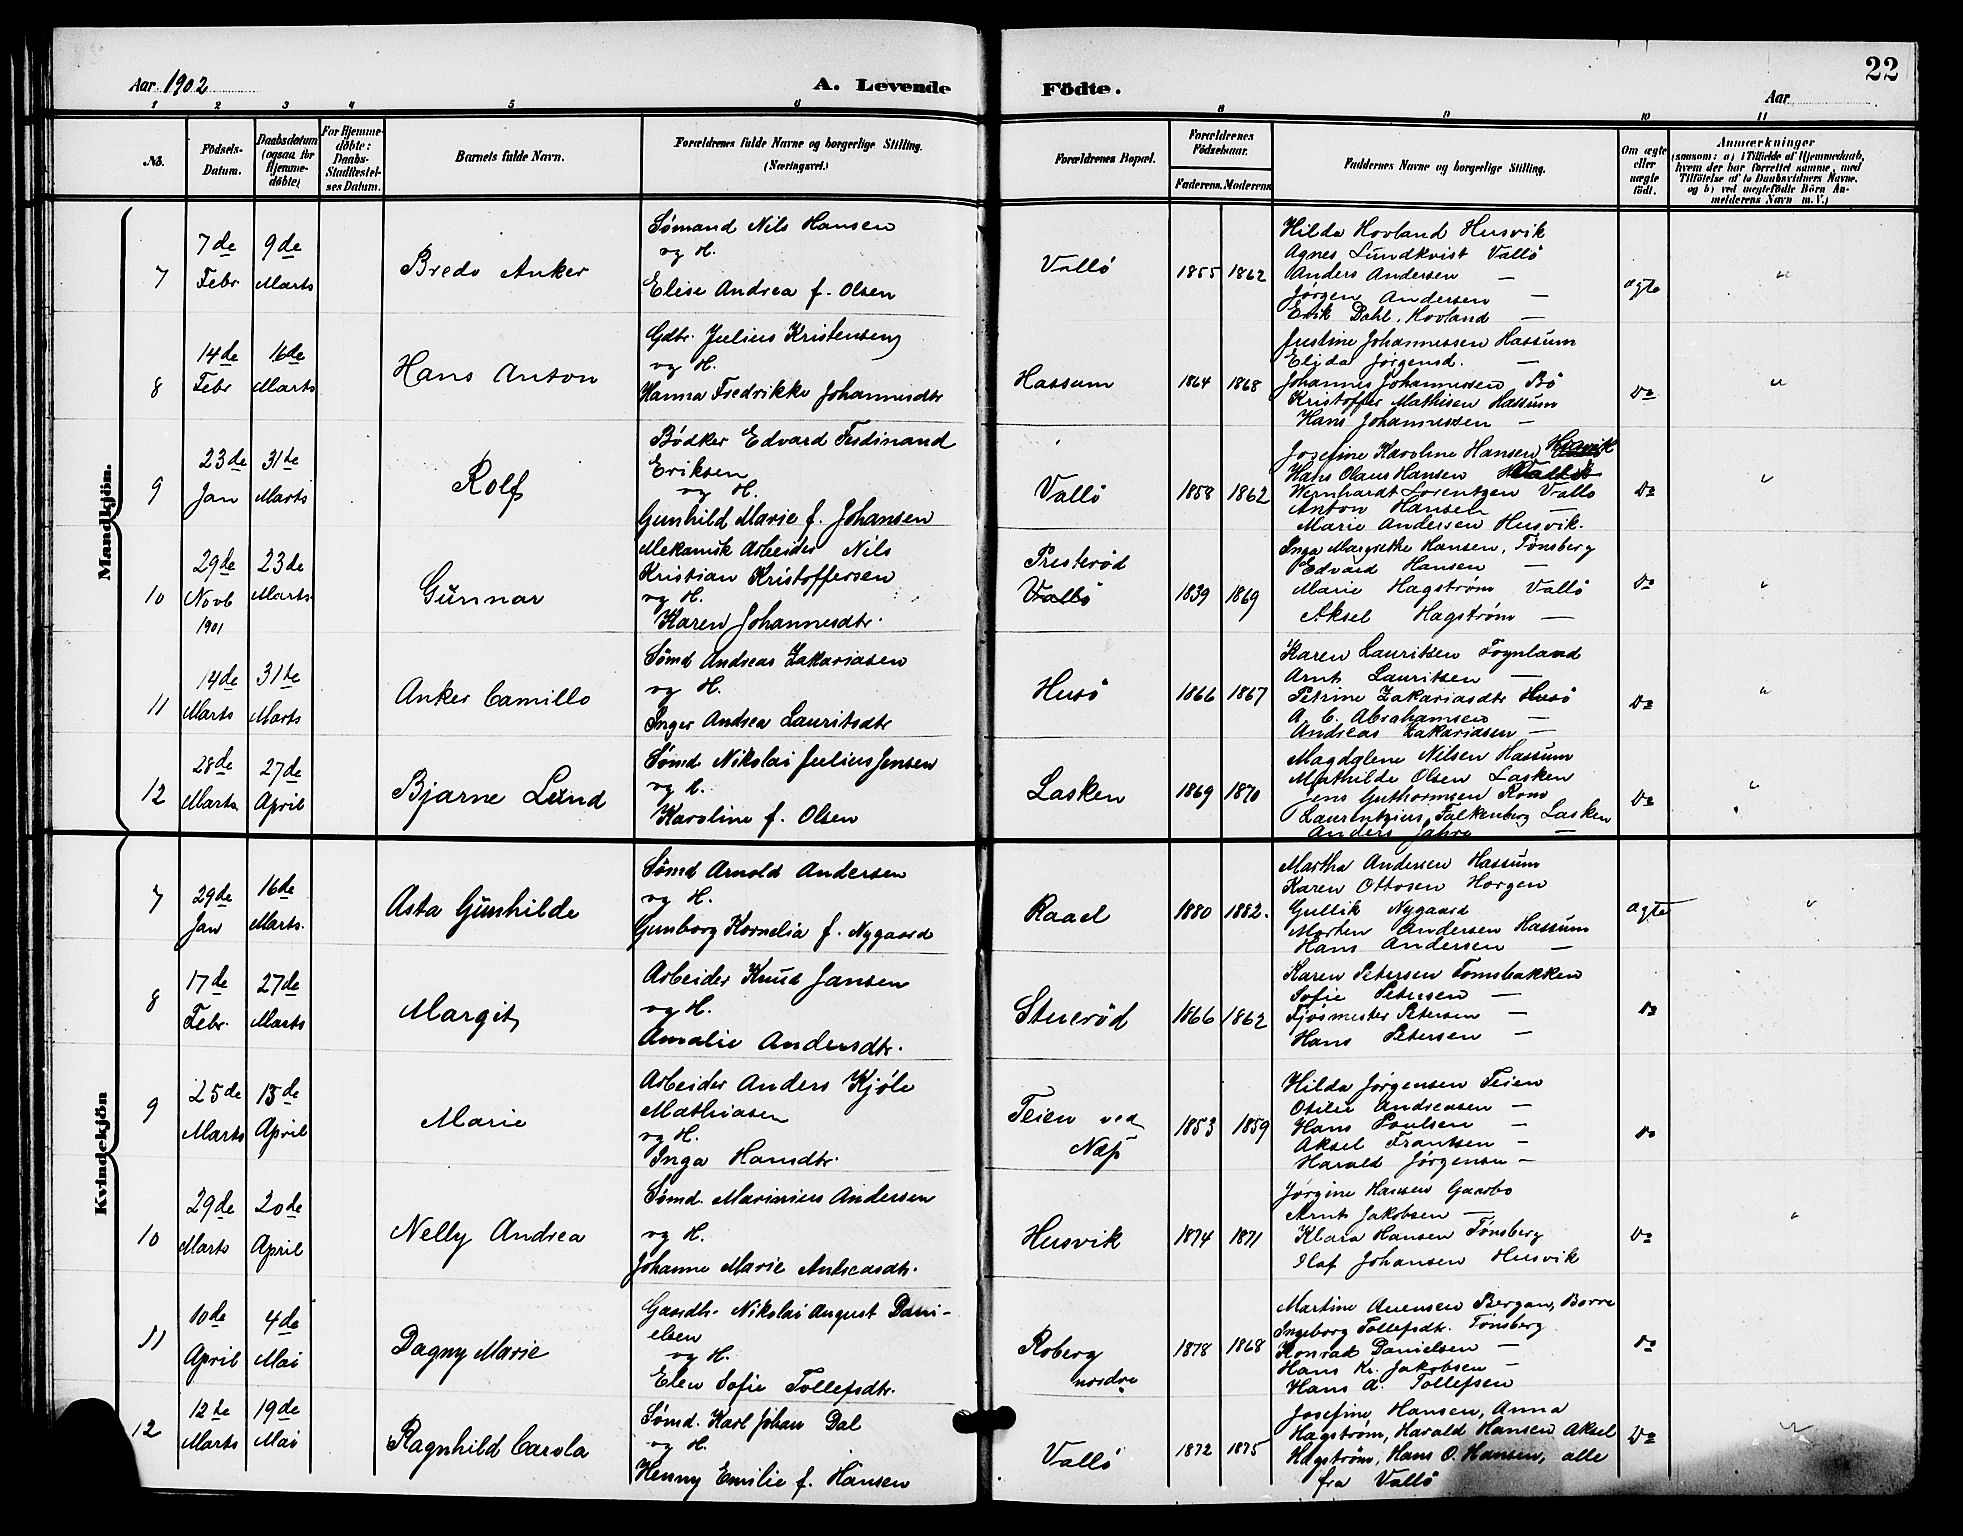 Aar 1902
A. Levende
Födte.
22
Aar
1 2 3 4 5 6 8 9 10 11
No.
Födsels-Datum.
Daabsdatum (ogsaa for Hjemme-döbte)
For Hjemme-döbte: Daabs-Stadfæstelses Datum.
Barnets fulde Navn.
Forældrenes fulde Navne og borgerlige Stilling. (Næringsvei.)
Forældrenes Bopæl.
Forældrenes Födselsaar.
Faderens. Moderens
Faddernes Navne og borgerlige Stilling.
Om ægte eller uægte födt.
Anmærkninger
(saasom: a) i Tilfælde af Hjemmedaab, hvem der har forrettet samme, med Tilföielse af to Daabsvidners Navne, og b) ved uægtefödte Börn An-melderens Navn m. V.)
Mandkjön.
7
7de Febr
9de Marts
Bredo Anker
Sømand Nils Hansen
og H.
Elise Andrea f. Olsen
Vallö
1855 1862
Hilda Hovland Husvik
Agnes Lundkvist Vallö
Anders Andersen —
Jørgen Andersen —
Erik Dahl, Hovland —
ægte
"
8
14de Febr
16de Marts
Hans Anton
Gdbr. Julius Kristensen
og H.
Hanna Fredrikke Johannesdtr
Hassum
1864 1868
Justine Johannessen Hassum
Elida Jørgensd. —
Johannes Johannessen Bö
Kristoffer Mathisen Hassum
Hans Johannessen —
Do
"
9
23de Jan
31te Marts
Rolf
Bødker Edvard Ferdinand
Eriksen
og H.
Gunhild Marie f. Johansen
Vallö
1858 1862
Josefine Karoline Hansen Husvik
Hans Olaus Hansen
Wernhardt Lorentzen Vallö
Anton Hansen —
Marie Andersen Husvik.
Do
"
10
29de Novb 1901
23de Marts
Gunnar
Mekanisk Arbeider Nils
Kristian Kristoffersen
og H.
Karen Johannesdtr.
Presterød
Vallö
1839 1869
Inga Margrethe Hansen, Tønsberg
Edvard Hansen —
Marie Hagstrøm Vallö
Aksel Hagstrøm —
Do
"
11
14de Marts
31te Marts
Anker Camillo
Sømd Andreas Zakariasen
og H.
Inger Andrea Lauritsdtr
Husö
1866 1867
Karen Lauritsen Føynland
Arnt Lauritsen —
Petrine Zakariasdtr Husö
A. C. Abrahamsen —
Andreas Zakariasen —
Do
"
12
28de Marts
27de April
Bjarne Lund
Sømd Nikolai Julius Jensen
og H.
Karoline f. Olsen
Lasken
1869 1870
Magdalene Nilsen Hassum
Mathilde Olsen Lasken
Jens Guthormsen Rom
Laurentzius Falkenberg Lasken
Anders Jahre —
Do
"
Kvindekjön
7
29de Jan
16de Marts.
Asta Gunhilde
Sømd Arnold Andersen
og H.
Gunborg Kornelia f. Nygaard
Raael
1880 1882.
Martha Andersen Hassum
Karen Ottosen Horgen
Gullik Nygaard
Morten Andersen Hassum
Hans Andersen —
ægte
"
8
17de Febr.
27de Marts
Margit
Arbeider Knud Jansen
og H.
Amalie Andersdtr.
Stuerød
1866 1862
Karen Petersen Tomsbakken
Sofie Petersen —
Fjösmester Petersen —
Hans Petersen —
Do
9
25de Marts
13de April
Marie
Arbeider Anders Kjøle
Mathiasen
og H.
Inga Hansdtr.
Teien ved
Næs
1853 1859
Hilda Jørgensen Teien
Otilie Andreasen —
Hans Poulsen —
Aksel Frantsen —
Harald Jørgensen —
Do
10
29de Marts
20de April
Nelly Andrea
Sømd. Marinius Andersen
og H.
Johanne Marie Andreasdtr.
Husvik
1874 1871
Jørgine Hansen Gaarbo
Arnt Jakobsen —
Klara Hansen Tønsberg
Olaf Johansen Husvik
Do
"
11
10de April
4de Mai
Dagny Marie
Gaardbr. Nikolai August Dani-
elsen
og H.
Elen Sofie Tollefsdtr.
Roberg
nordre
1878 1868
Martine Auensen Bergan, Borre
Ingeborg Tollefsdtr. Tønsberg
Konrad Danielsen —
Hans Kr. Jakobsen —
Hans A. Tollefsen
Do
12
12te Marts
19de Mai
Ragnhild Carola
Sømd. Karl Johan Dal
og H.
Henny Emilie f. Hansen
Vallö
1872 1875
Josefine Hansen, Anna
Hagstrøm, Harald Hansen Aksel
Hagstrøm, Hans O. Hansen, alle
fra Vallö
Do
"